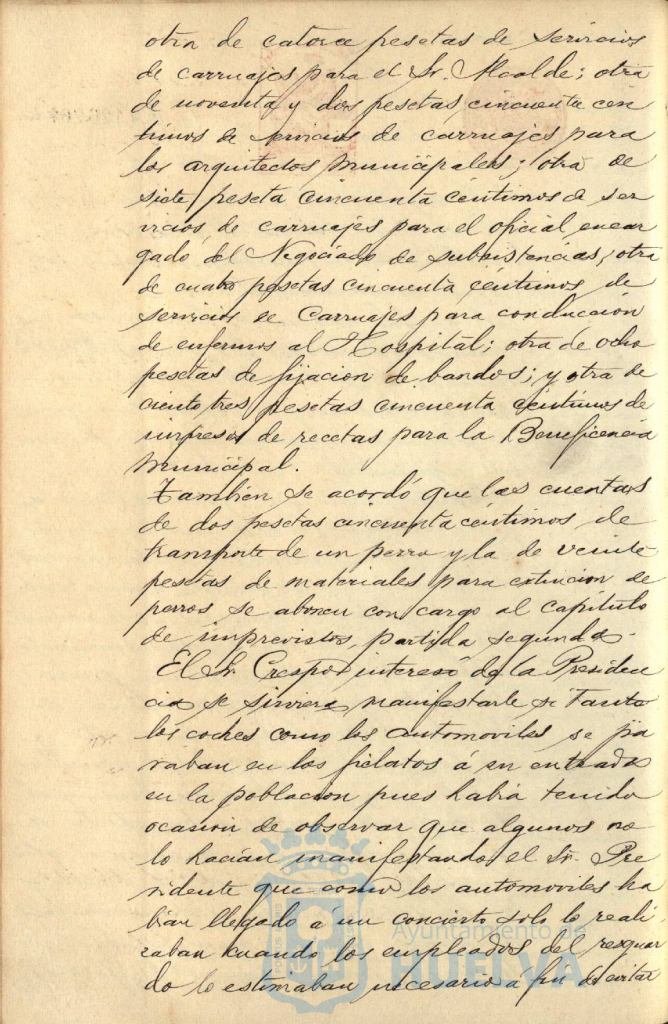 otra de catorce pesetas de servicios
de carruajes para el Sr. Alcalde; otra
de noventa y dos pesetas cincuenta cen
timos de servicios de carruajes para
los arquitectos municipales; otra de
siete peseta cincuenta centimos de ser
vicios de carruajes para el oficial encar
gado del Negociado de subsistencias; otra
de cuatro pesetas cincuenta centimos de
servicios de Carruajes para conducción
de enfermos al Hospital; otra de ocho
pesetas de fijacion de bandos; y otra de
ciento tres pesetas cincuenta centimos de
impresos de recetas para la Beneficencia
Municipal.
Tambien se acordó que las cuentas
de dos pesetas cincuenta centimos de
transporte de un perro y la de veinte
pesetas de materiales para extincion de
perros se abonen con cargo al capítulo
de imprevistos, partida segunda.
El Sr. Crespo interesó de la Presiden
cia se sirviera manifestarle si tanto
los coches como los automoviles se pa
raban en los fielatos á su entrada
en la poblacion pues habia tenido
ocasión de observar que algunos no
lo hacían manifestando el Sr. Pre
sidente que como los automoviles ha
bian llegado a un concierto solo lo reali
zaban cuando los empleados del resguar
do lo estimaban necesario á fin de evitar
Ayuntamiento de
HUELVA